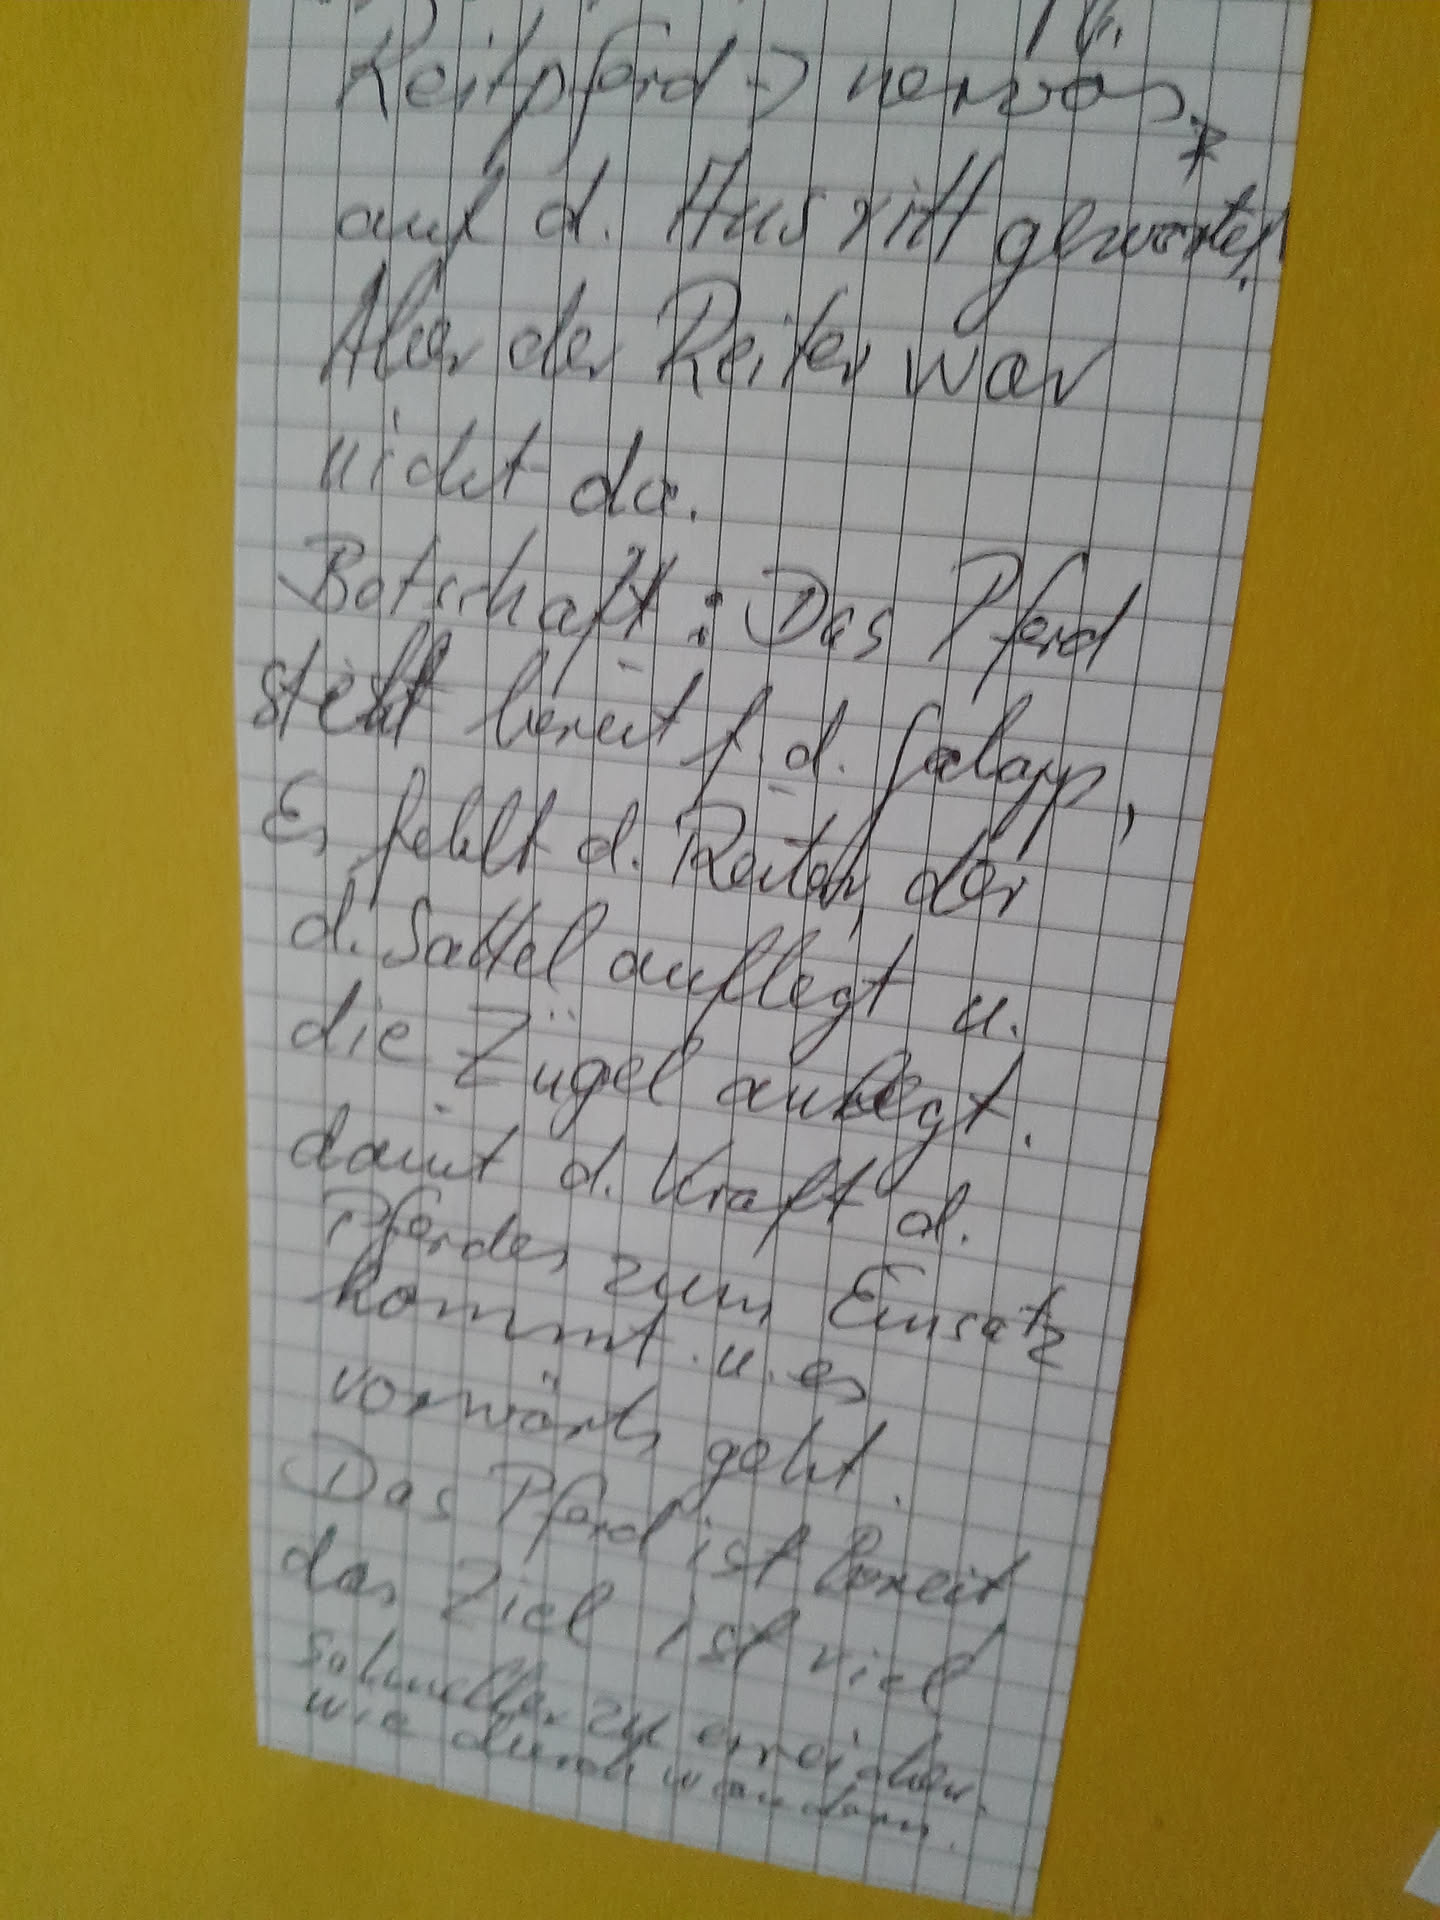 Reitpferd → nervös *
auf d. Ausritt gewartet.
Aber der Reiter war
nicht da.
Botschaft: Das Pferd
steht bereit f. d. Galopp,
Es fehlt d. Reiter, der
d. Sattel auflegt u.
die Zügel anlegt.
damit d. Kraft d.
Pferdes zum Einsatz
kommt u. es
vorwärts geht.
Das Pferd ist bereit
das Ziel ist viel
schneller zu erreichen.
wie durch wandern.